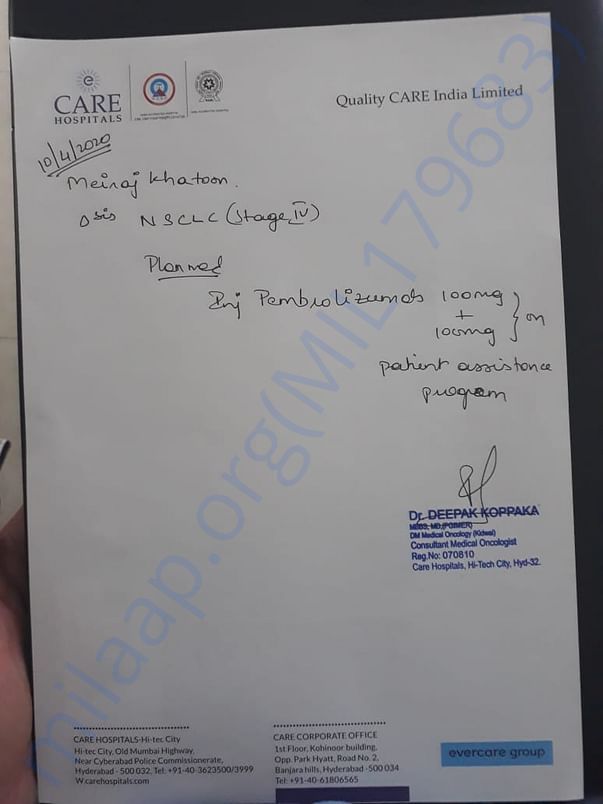 CARE
HOSPITALS
Quality CARE India Limited
10/4/2020
Meiraj Khatoon.
Δsis NSCLC (Stage IV)
Planned
Inj Pembrolizumab 100mg
+
100mg } on
patient assistance
program
Dr. DEEPAK KOPPAKA
MBBS, MD,(PGIMER)
DM Medical Oncology (Kidwai)
Consultant Medical Oncologist
Reg.No: 070810
Care Hospitals, Hi-Tech City, Hyd-32.
milaap.org(MIL179683)
CARE HOSPITALS-Hi-tec City
Hi-tec City, Old Mumbai Highway,
Near Cyberabad Police Commissionerate,
Hyderabad - 500 032, Tel: +91-40-3623500/3999
W.carehospitals.com
CARE CORPORATE OFFICE
1st Floor, Kohinoor building,
Opp. Park Hyatt, Road No. 2,
Banjara hills, Hyderabad -500 034
Tel: +91-40-61806565
evercare group